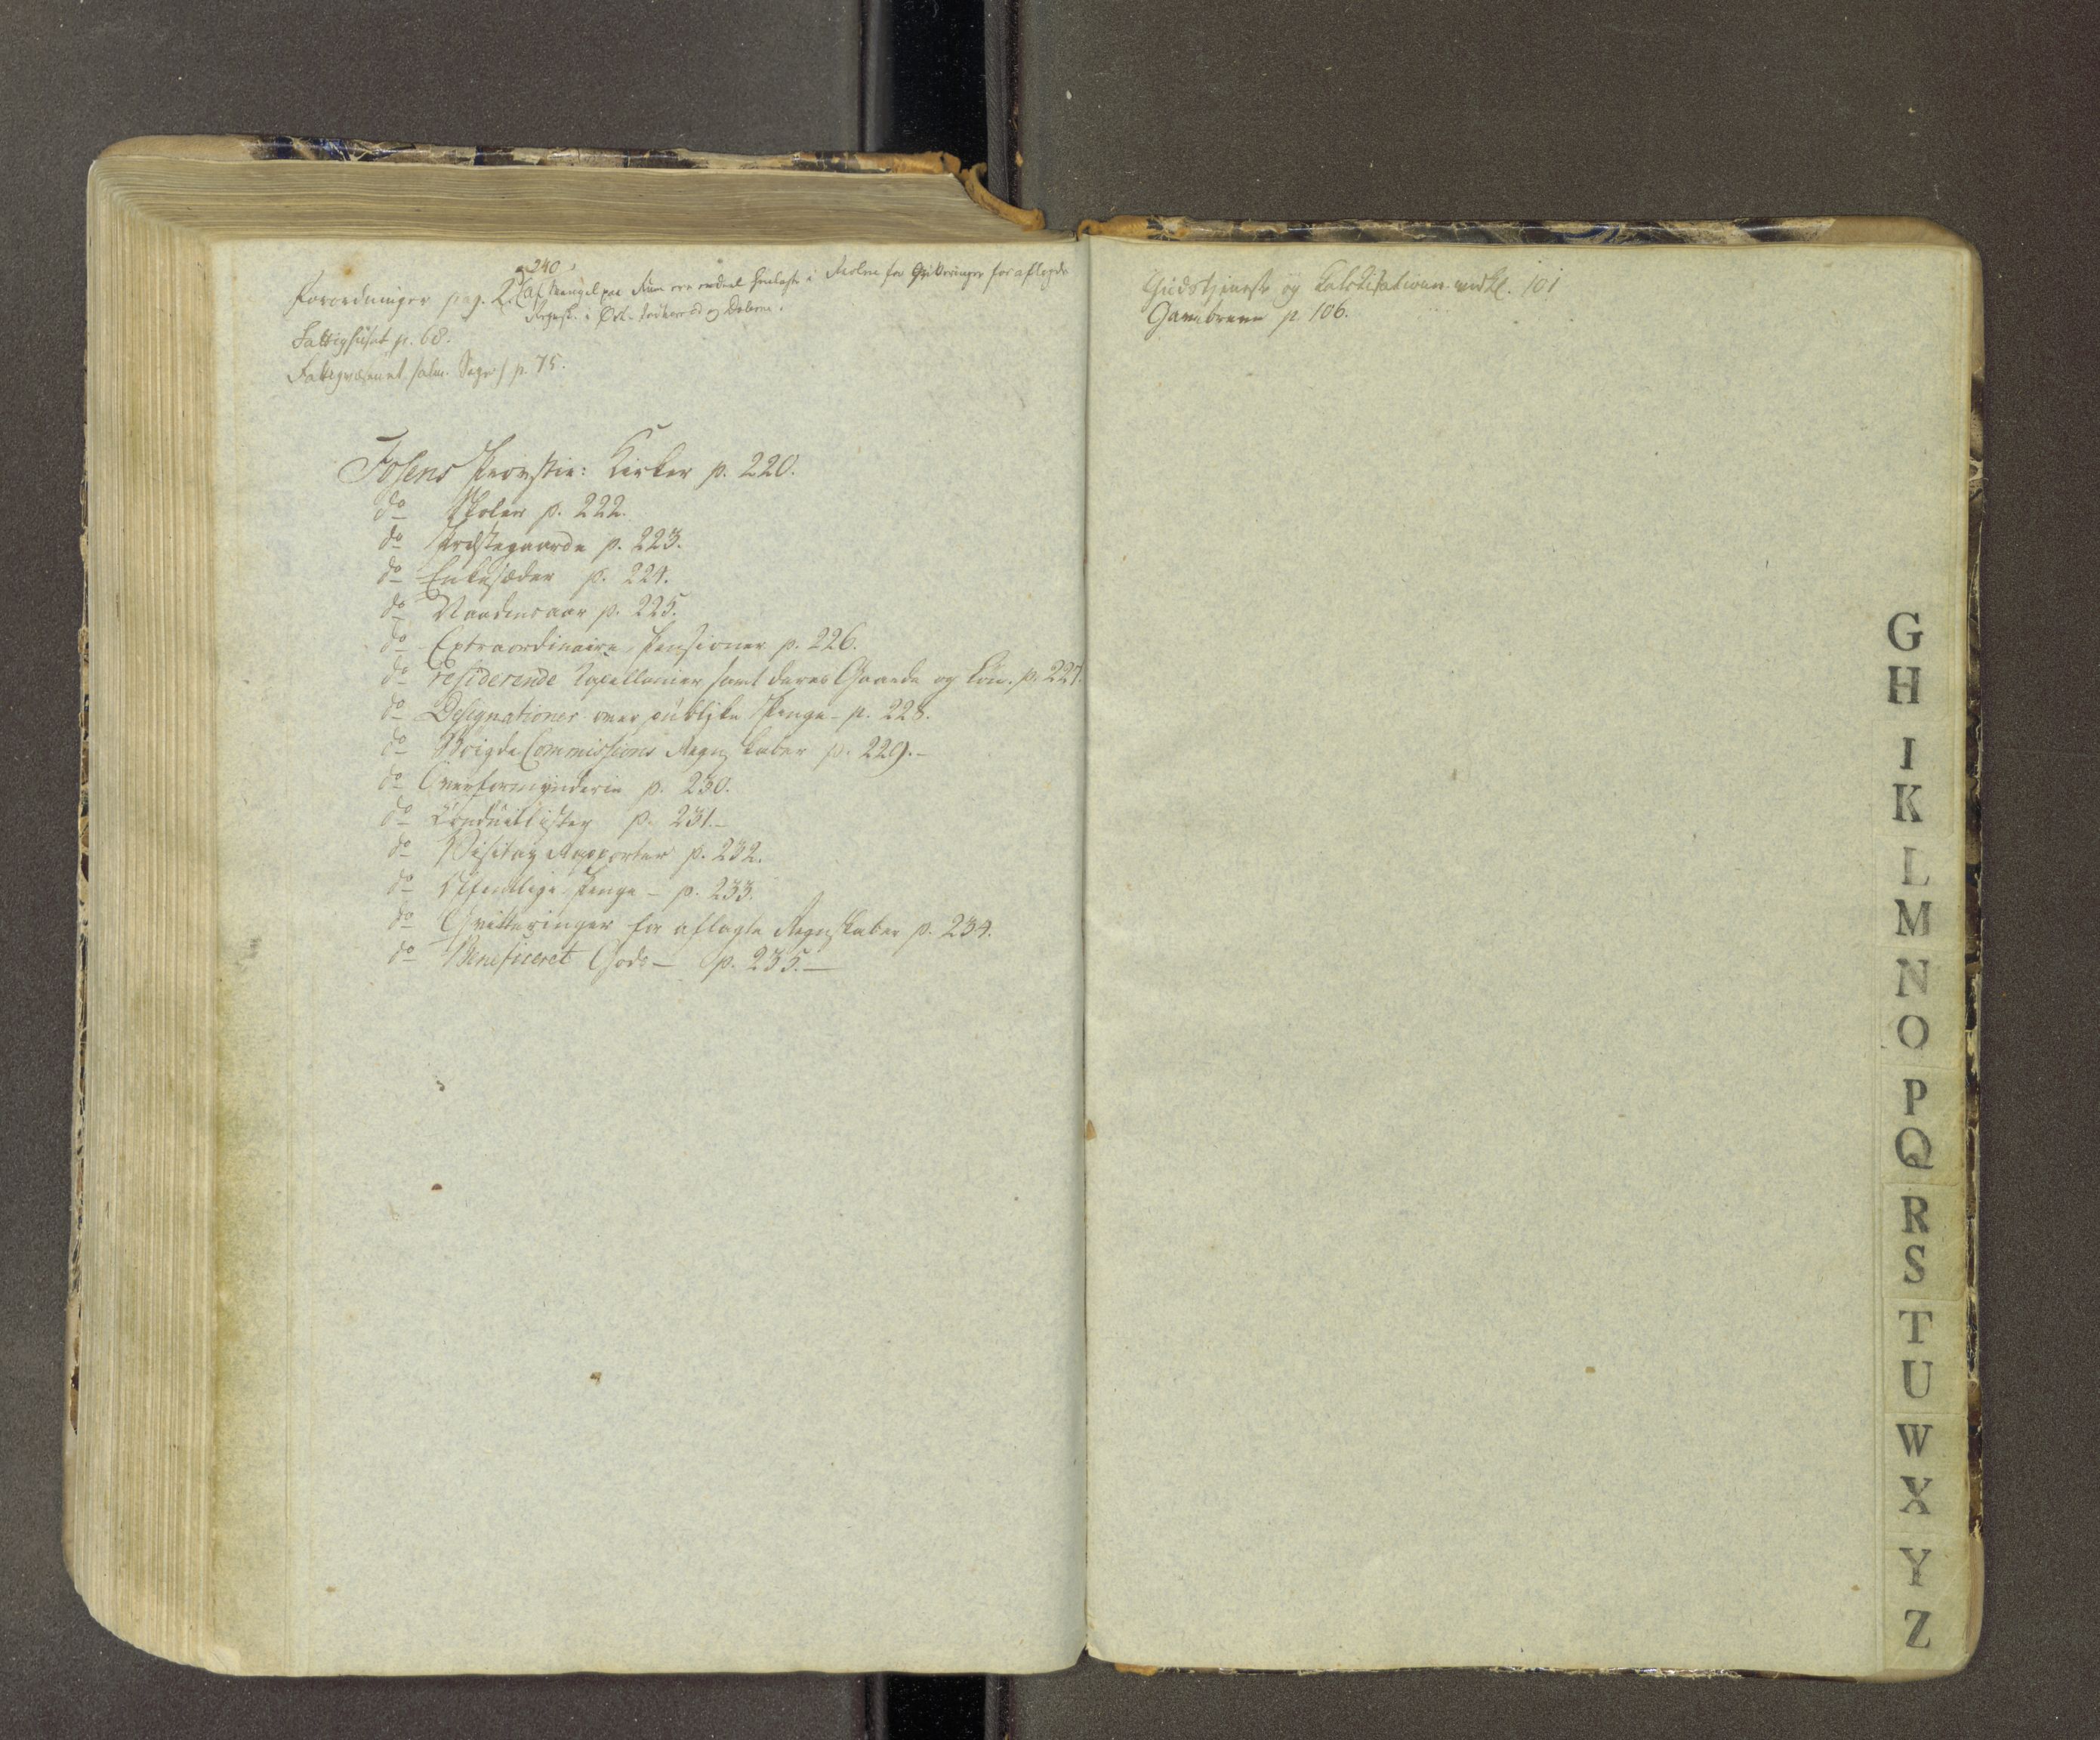 240
Forordninger pag. 2. (af Mangel paa Rum ere endeel henlagte i Reolen for Qvitteringer for aflagde
Regnsk. i Øst- og Dalerne.
Fattighuset p. 68.
Fattigvæsenet p. 75.
Fosens Provstie: Kirker p. 220.
do Skoler p. 222.
do Præstegaarde p. 223.
do Enkesæder p. 224.
do Naadensaar p. 225.
do Extraordinaire Pensioner p. 226.
do residerende Capellanier samt deres Gaarde og Løn. p. 227.
do Designationer over publike Penge - p. 228.
do Boigde Commissions Regnskaber p. 229. -
do Overformynderie p. 230.
do Conduitlister p. 231. -
do Visitaz Rapporter p. 232.
do Offentlige Penge - p. 233.
do Qvitteringer for aflagte Regnskaber p. 234.
do Beneficeret Gods - p. 235. -
Gudstjeneste og p. 101
p 106.
G
H
I
K
L
M
N
O
P
Q
R
S
T
U
W
X
Y
Z